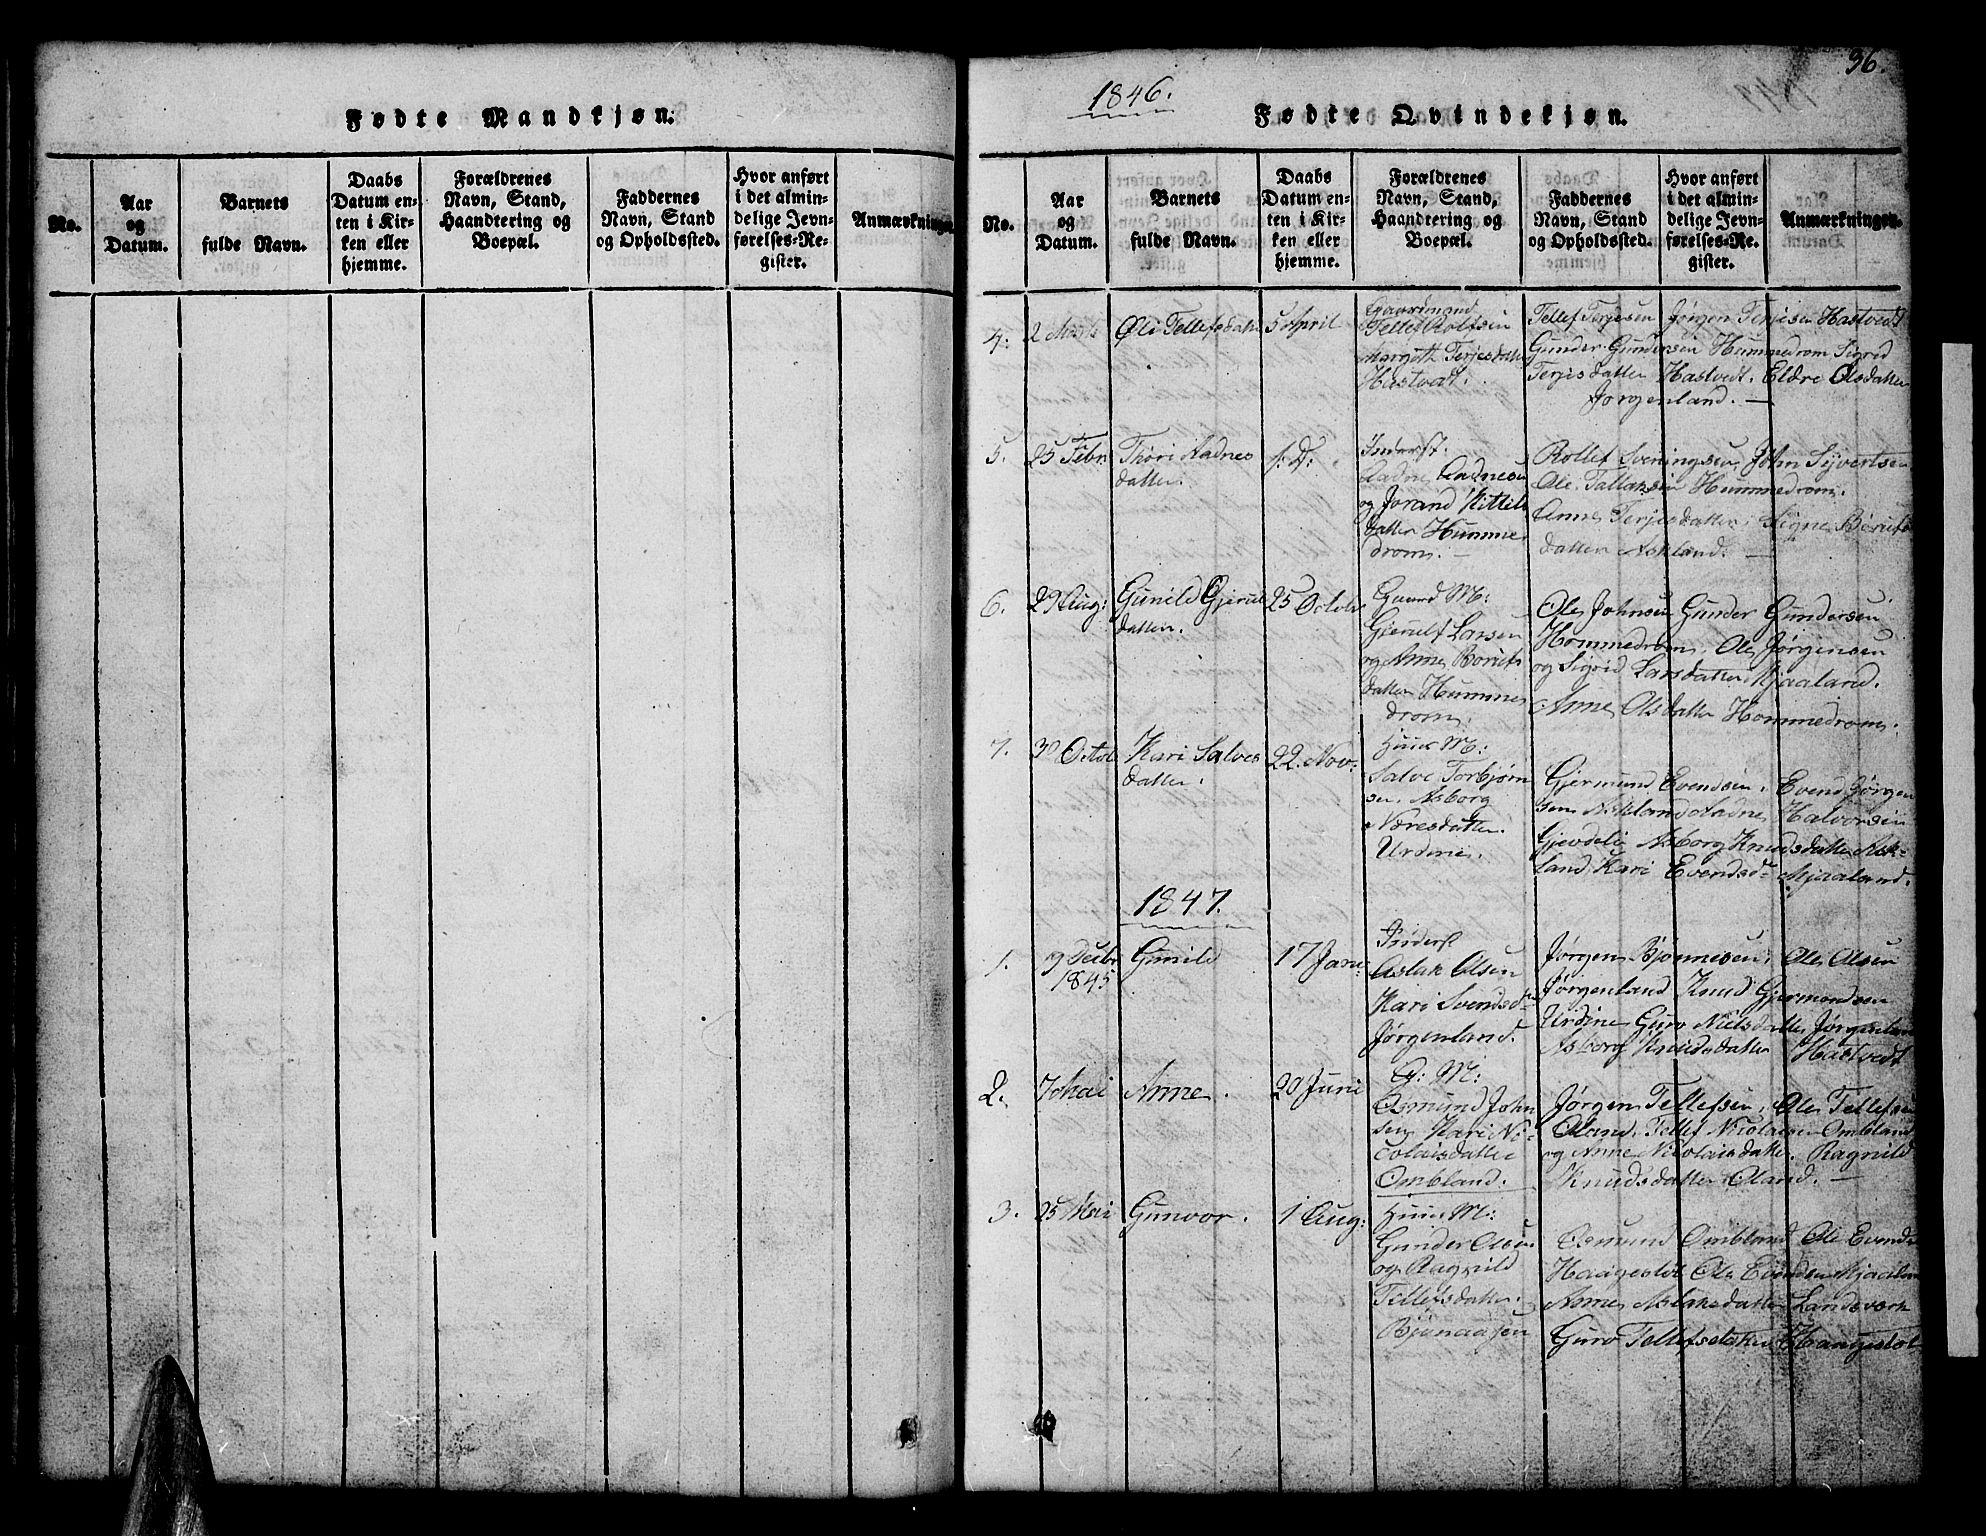 Fødte Mandkjøn.
No.
Aar
og
Datum.
Barnets
fulde Navn.
Daabs
Datum en-
ten i Kir-
ken eller
hjemme.
Forældrenes
Navn, Stand,
Haandtering og
Boepæl.
Faddernes
Navn, Stand
og Opholdssted.
Hvor anført
i det almin-
delige Jevn-
førelses-Re-
gister.
Anmærkninger.
36.
1846.
Fødte Qvindekjøn.
No.
Aar
og
Datum.
Barnets
fulde Navn.
Daabs
Datum en-
ten i Kir-
ken eller
hjemme.
Forældrenes
Navn, Stand,
Haandtering og
Boepæl.
Faddernes
Navn, Stand
og Opholdssted.
Hvor anført
i det almin-
delige Jevn-
førelses-Re-
gister.
Anmærkninger.
4.
2 Marts
Øli Tellefsdatter
5 April
Gaardmand
Tellef Rolfsen
Margith Terjesdatter
Hastvedt.
Tellef Terjesen Jørgen Terjesen Hastvedt
Gunder Gundersen Hummedrom Sigrid
Terjesdatter Hastvedt. Eldre Olsdatter
Jørgenland.
5.
25 Febr:
Thori Aadnes
datter.
s: D:
Inderst.
Aadne Aadnesen
og Jorand Kittils
datter Humme
drom.
Rollef Sveningsen, John Syvertsen
Ole Tallaksen Hummedrom.
Anne Terjesdatter, Signe Børufs
datter Askland.
6.
29 Aug:
Gunild Gjerul
datter.
25 Octob
Gaard M:
Gjerulf Larsen
og Anne Børufs
datter Humme
drom.
Ole Johnsen Gunder Gundersen
Hommedrom. Ole Jørgensen
og Sigrid Larsdatter Mjaaland.
Anne Olsdatter Hommedrom.
7.
30 Octob
Kari Salves
datter.
22. Nov:
Huus M:
Salve Torbjørn
sen. Asborg
Næresdatter
Urdine.
Gjermund Evendsen. Evend Jørgen
sen Askland Aadne Halvorsen
Gjevdeli Asborg Knudsdatter Ask-
land Kari Evendsd- Mjaaland.
1847.
1.
9 Decbr
1845
Gunild
17 Janu:
Inderst
Aslak Olsen
Kari Svendsd-
Jørgenland.
Jørgen Bjønnesen. Ole Olsen
Jørgenland Knud Gjermondsen
Urdine Guro Nielsdatter Jørgenland
Asborg Knudsdatter Hastvedt
2.
7 Mai
Anne.
20 Juni
G: M:
Osmund John
sen Kari Ni-
colaisdatter
Ombland.
Jørgen Tellefsen. Ole Tellefsen
Oland. Tellef Nicolaisen Ombland
og Anne Nicolaisdatter. Ragnild
Knudsdatter Oland.
3.
25 Mai
Gunvor.
1 Aug:
Huus M:
Gunder Olsen
og Ragnild
Tellefsdatter.
Bjønaasen
Osmund Ombland Ole Evends
Haugestøl Ole Evendsen Mjaaland
Anne Aslaksdatter Landsverk
Guro Tellefsdatter Haugestøl